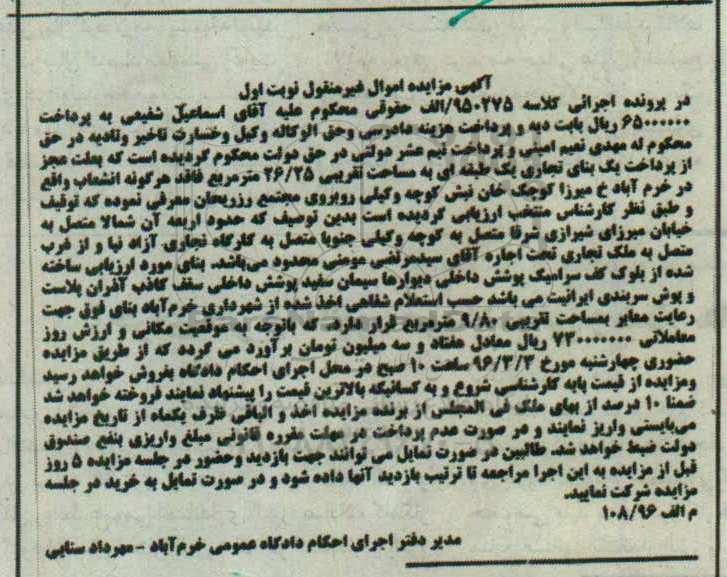 آگهی مزایده اموال غیرمنقول نوبت اول
در پرونده اجرائی کلاسه ۹۵۰۲۷۵/الف حقوقی محکوم علیه آقای اسماعیل شفیعی به پرداخت
۶۵۰۰۰۰۰۰ ریال بابت دیه و پرداخت هزینه دادرسی وحق الوکاله وکیل وخسارت تاخیر وتادیه در حق
محکوم له مهدی نعیم امینی و پرداخت نیم عشر دولتی در حق دولت محکوم گردیده است که بعلت عجز
از پرداخت یک بنای تجاری یک طبقه ای به مساحت تقریبی ۲۶/۲۵ مترمربع فاقد هرگونه انشعاب واقع
در خرم آباد خ میرزا کوچک خان نبش کوچه وکیلی روبروی مجتمع رزریحان معرفی نموده که توقیف
و طبق نظر کارشناس منتخب ارزیابی گردیده است بدین توصیف که حدود اربعه آن شمالا متصل به
خیابان میرزای شیرازی شرقا متصل به کوچه وکیلی جنوبا متصل به کارگاه نجاری آزاد نیا و از غرب
متصل به ملک تجاری تحت اجاره آقای سیدمرتضی مومنی محدود می‌باشد. بنای مورد ارزیابی ساخته
شده از بلوک کف سرامیک پوشش داخلی دیوارها سیمان سفید پوشش داخلی سقف کاذب آذران پلاست
و پوش سربندی ایرانیت می باشد حسب استعلام شفاهی اخذ شده از شهرداری خرم‌آباد بنای فوق جهت
رعایت معابر بمساحت تقریبی ۹/۸۰ مترمربع قرار دارد. که باتوجه به موقعیت مکانی و ارزش روز
معاملاتی ۷۳۰۰۰۰۰۰۰ ریال معادل هفتاد و سه میلیون تومان برآورد می گردد که از طریق مزایده
حضوری چهارشنبه مورخ ۹۶/۳/۳ ساعت ۱۰ صبح در محل اجرای احکام دادگاه بفروش خواهد رسید
ومزایده از قیمت پایه کارشناسی شروع و به کسانیکه بالاترین قیمت را پیشنهاد نمایند فروخته خواهد شد
ضمنا ۱۰ درصد از بهای ملک فی المجلس از برنده مزایده اخذ و الباقی ظرف یکماه از تاریخ مزایده
می‌بایستی واریز نمایند و در صورت عدم پرداخت در مهلت مقرره قانونی مبلغ واریزی بنفع صندوق
دولت ضبط خواهد شد. طالبین در صورت تمایل می توانند جهت بازدید وحضور در جلسه مزایده ۵ روز
قبل از مزایده به این اجرا مراجعه تا ترتیب بازدید آنها داده شود و در صورت تمایل به خرید در جلسه
مزایده شرکت نمایید.
م الف ۱۰۸/۹۶
مدیر دفتر اجرای احکام دادگاه عمومی خرم‌آباد – مهرداد سنایی